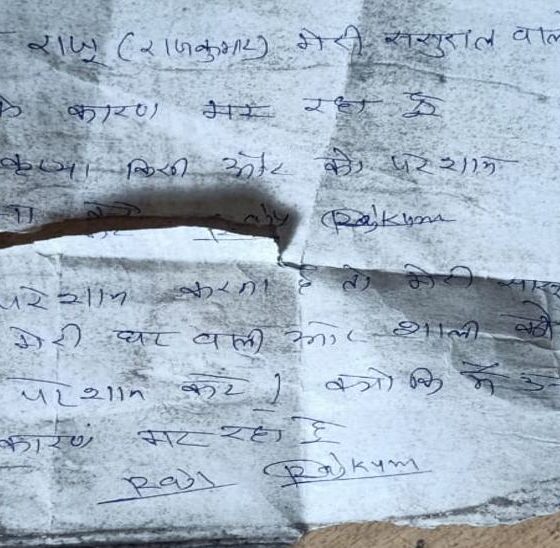 राजू (राजकुमार) मेरी ससुराल वाल
के कारण मर रहा हूँ
कृप्या किसी और को परेशान
ना करे Raju Rajkum
परेशान करना है तो मेरी सास
मेरी घर वाली और शाली को
परेशान करे। क्यो कि मैं उ
कारण मर रहा हूँ
Raju Rajkum